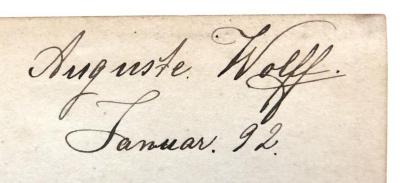 Auguste. Wolff.
Januar. 92.